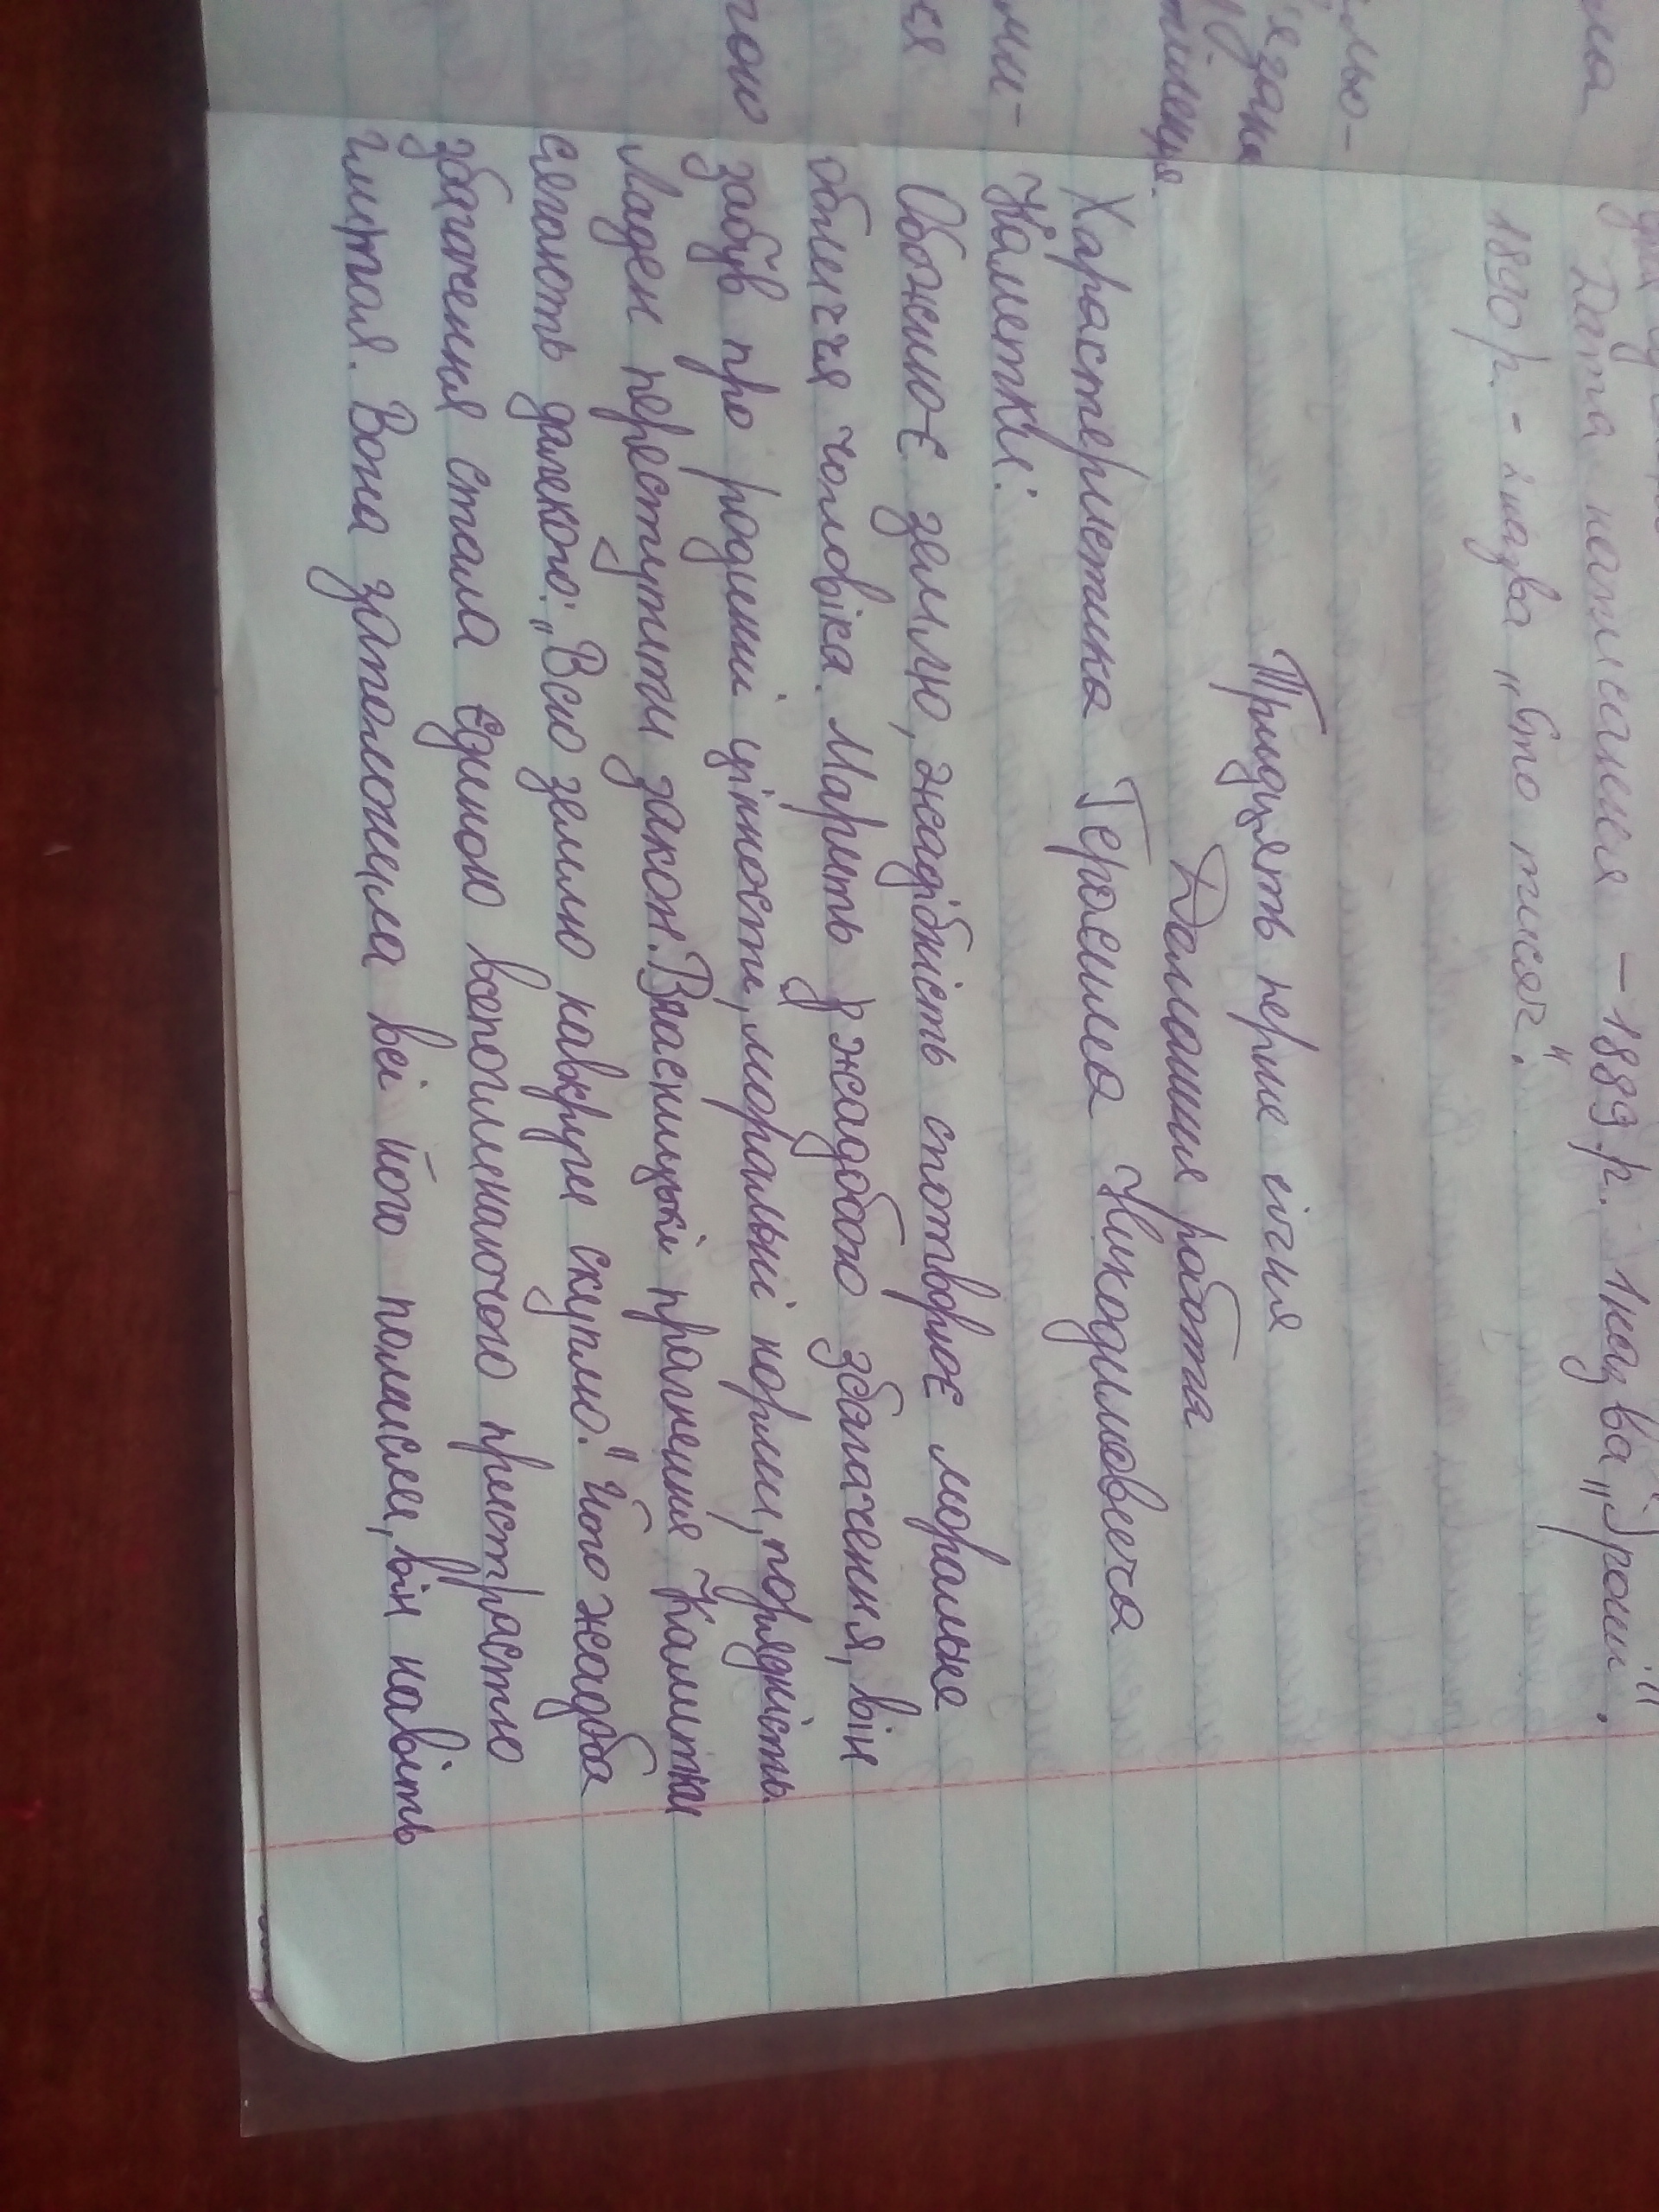 Дата написання – 1889 р. 1 назва „Гроші".
1890 р. - 2 назва „Сто тисяч".
Тридцять перше січня
Домашня робота
Характеристика Геросима Никодимовича
Калитки:
Обожнює землю, жадібність спотворює моральне
обличчя чоловіка. Марить жадобою збагачення, він
забув про родинні цінності, моральні норми, порядність
Ладен переступити закон. Власницькі прагнення Калитки
сягають далекого: „Всю землю навкруги скуплю." Його жадоба
збагачення стала єдиною всепоглинаючою пристрастю
життя. Вона заполонила всі його помисли, він навіть